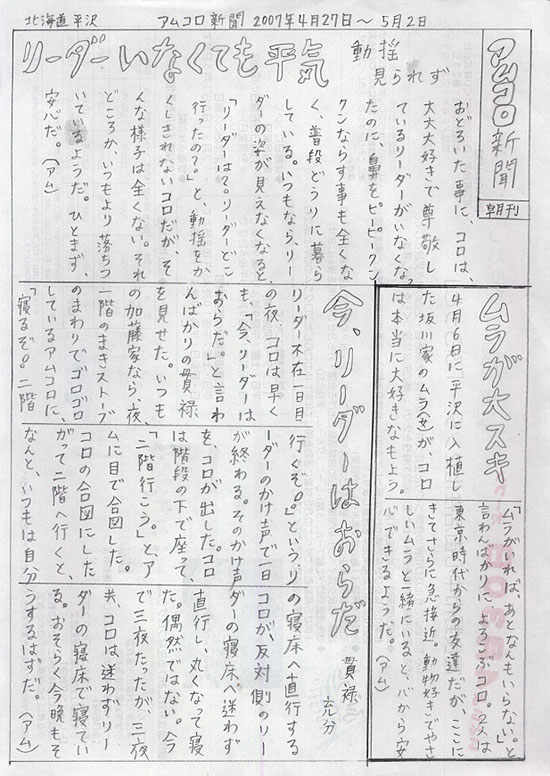 北海道 平沢 アムコロ新聞 2007年4月27日〜5月2日
アムコロ新聞
朝刊
リーダーいなくても平気
動揺
見られず
おどろいた事に、コロは、
大大大好きで尊敬し
ているリーダーがいなくなっ
たのに、鼻をピーピークン
クンならす事も全くな
く、普段どうりに暮ら
している。いつもなら、リー
ダーの姿が見えなくなると、
「リーダーは？リーダーどこ
行ったの？」と、動揺をか
くしきれないコロだが、そ
んな様子は全くない。それ
どころか、いつもより落ちつ
いているようだ。ひとまず、
安心だ。(アム)
ムラが大スキ
4月6日に平沢に入植し
た坂川家のムラ(♀)が、コロ
は本当に大好きなもよう。
「ムラがいれば、あとなんもいらない。」と
言わんばかりによろこぶコロ。2人は
東京時代からの友達だが、ここに
きてさらに急接近。動物好きでやさ
しいムラと一緒にいると、心から安
心できるようだ。(アム)
今、リーダーはおらだ
貫禄
充分
リーダー不在一日目
の夜、コロは早く
も、「今、リーダーは
おらだ。」と言わ
んばかりの貫禄
を見せた。いつも
の加藤家なら、夜、
一階のまきストーブ
のまわりでゴロゴロ
しているアムコロに、
「寝るぞ。二階
行くぞ。」という、リ
ーダーのかけ声で一日
が終わる。そのかけ声
を、コロが出した。コロ
は階段の下で座って、
「二階行こう。」とア
ムに目で合図した。
コロの合図にした
がって二階へ行くと、
なんと、いつもは自分
の寝床へ直行する
コロが、反対側のリー
ダーの寝床へ迷わず
直行し、丸くなって寝
た。偶然ではない。今
で三夜たったが、三夜
共、コロは迷わずリー
ダーの寝床で寝てい
る。おそらく今晩もそ
うするはずだ。(アム)